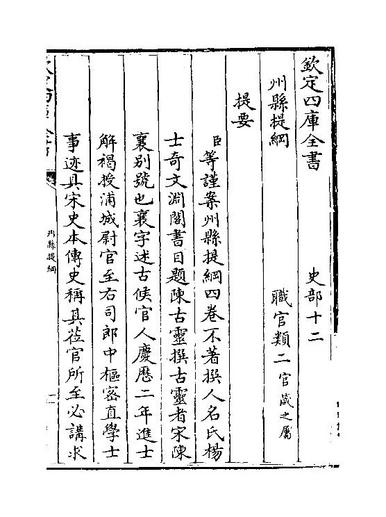 欽定四庫全書
史部十二
州縣提綱
職官類二官箴之屬
提要
臣等謹案州縣提綱四卷不著撰人名氏楊
士奇文淵閣書目題陳古靈撰古靈者宋陳
襄别號也襄字述古候官人慶厯二年進士
解褐授浦城尉官至右司郎中樞密直學士
事迹具宋史本傳史稱其莅官所至必講求
州縣提綱